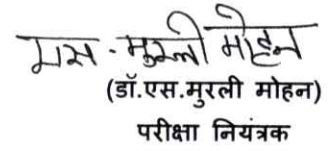 एस. मुरली मोहन
(डॉ.एस.मुरली मोहन)
परीक्षा नियंत्रक